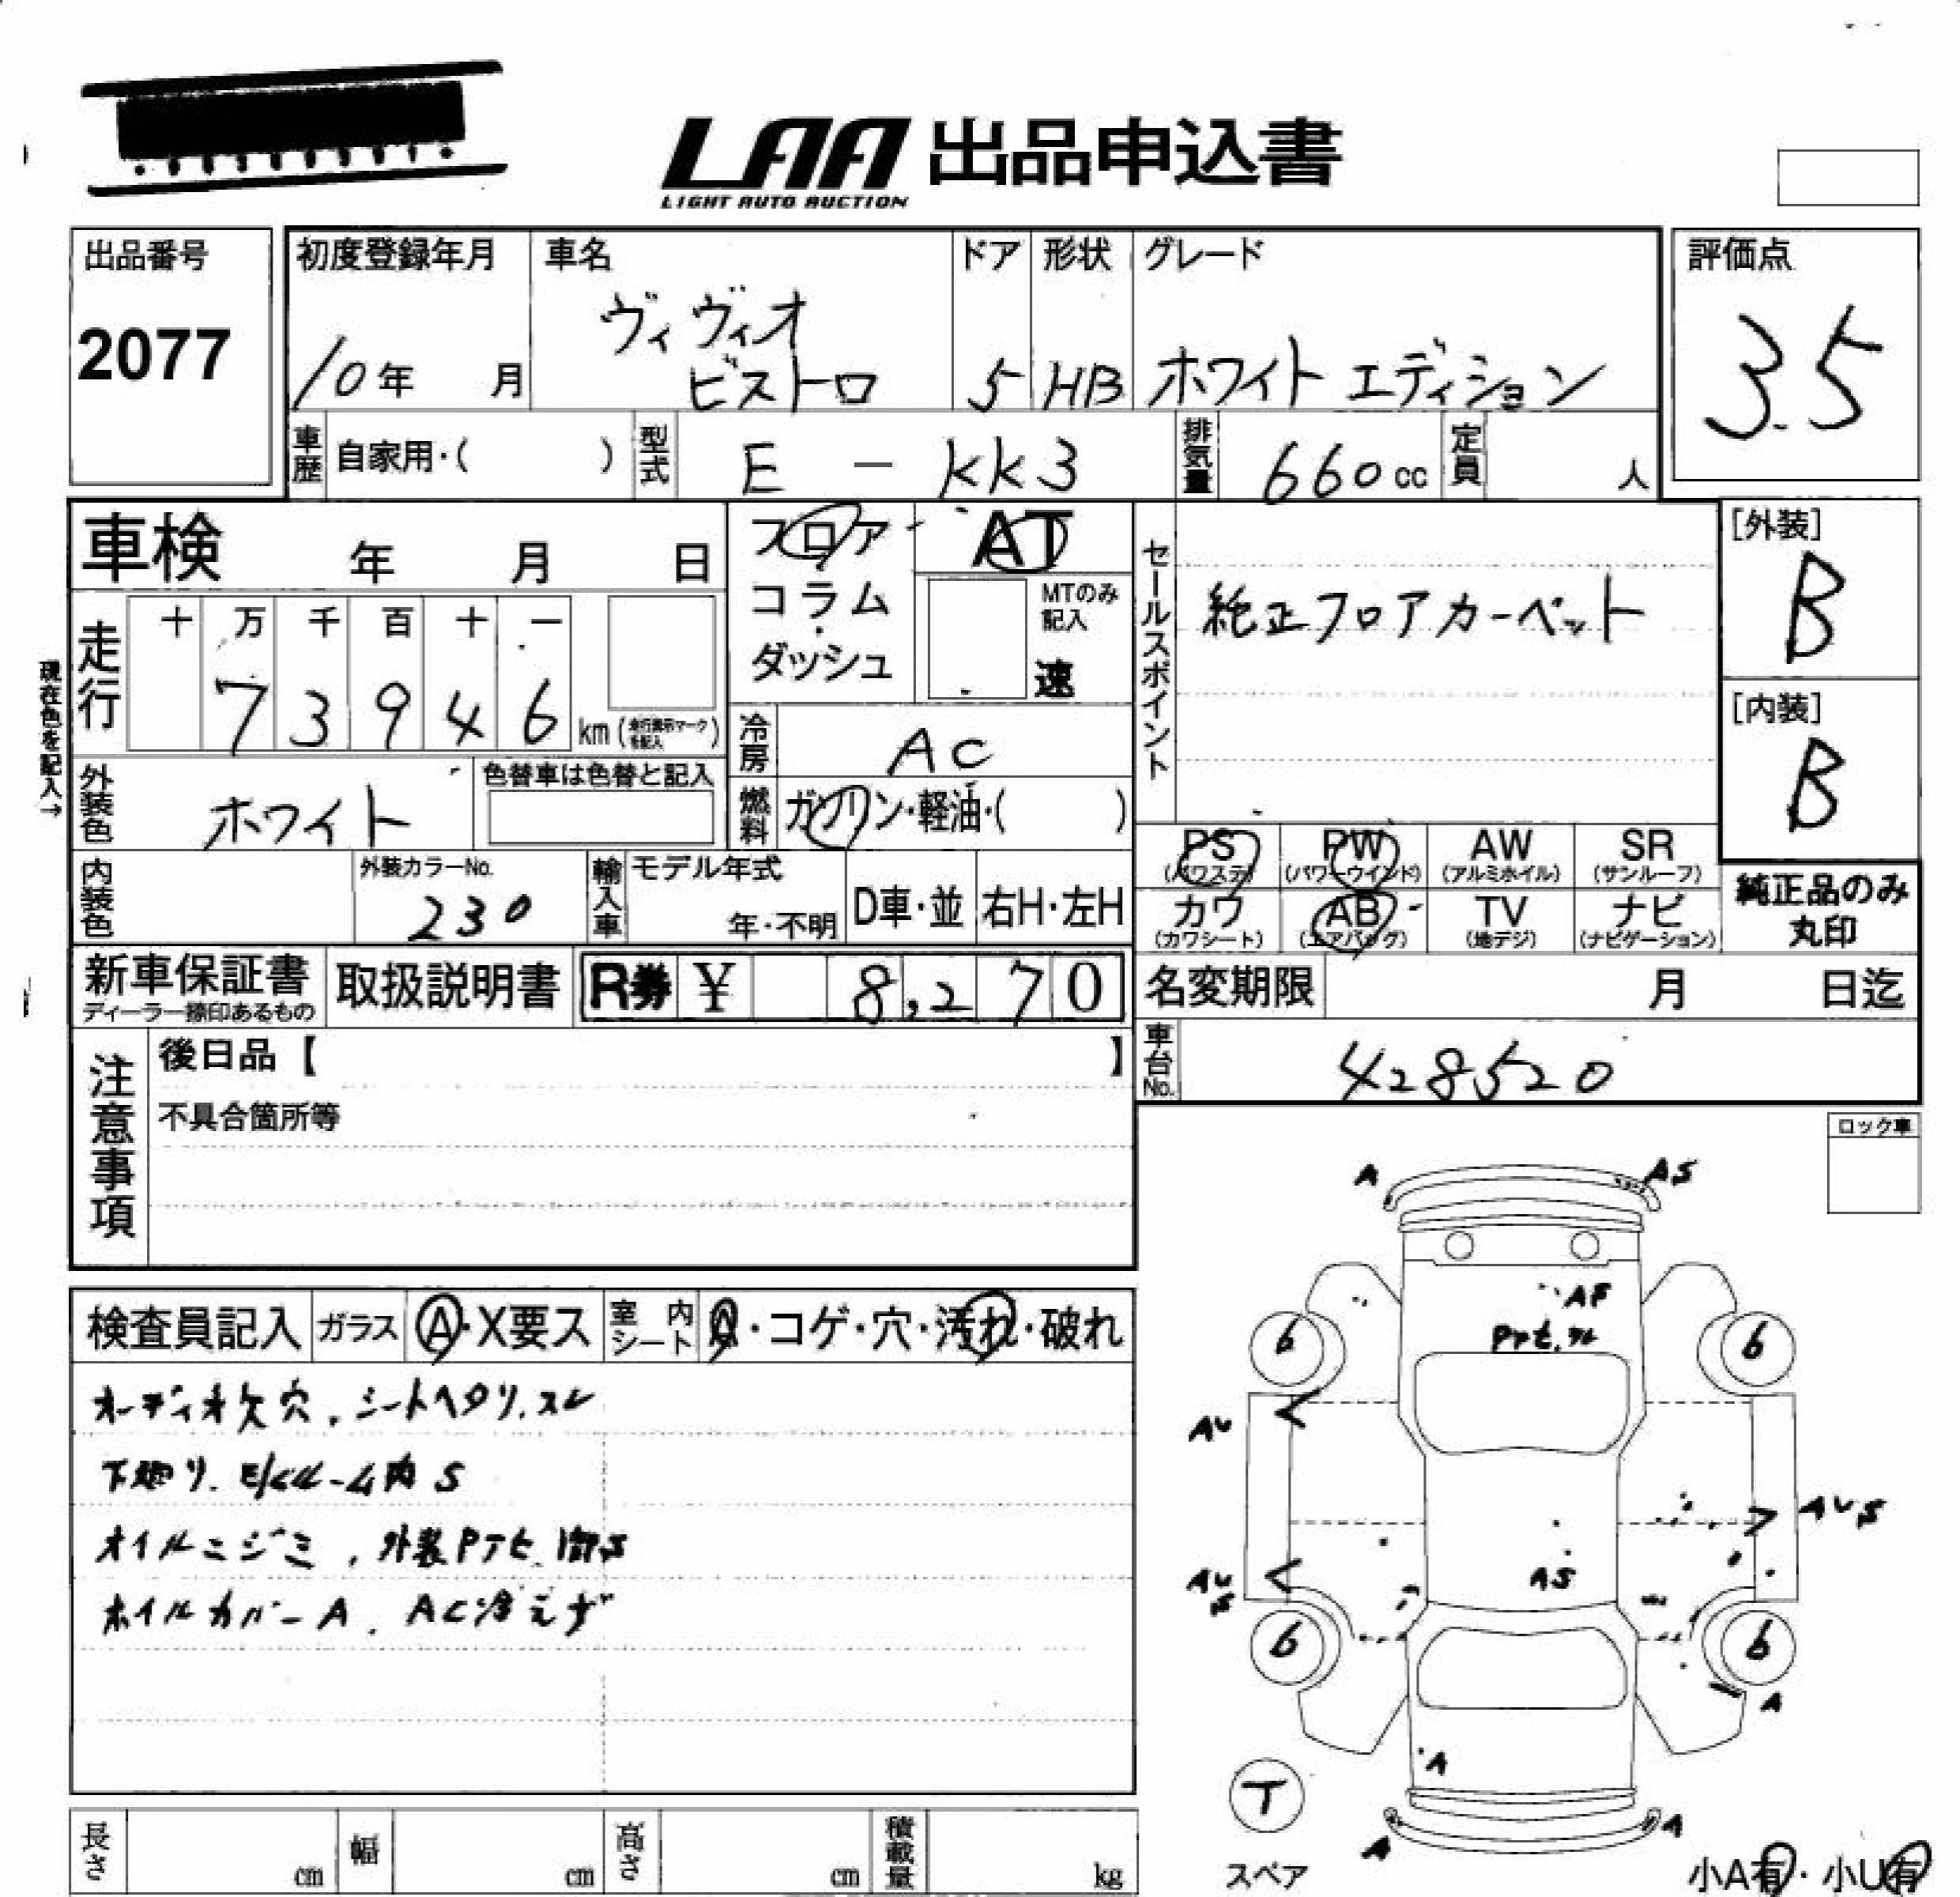 LAA 出品申込書
LIGHT AUTO AUCTION
出品番号
2077
初度登録年月
10年 月
車名
ヴィヴィオ
ビストロ
ドア
5
形状
HB
グレード
ホワイト エディション
評価点
3.5
車歴 自家用・( )
型式 E - KK3
排気量 660cc
定員 人
車検 年 月 日
フロア・
コラム
・
ダッシュ
AT
MTのみ
記入
速
セールスポイント
純正フロアカーペット
[外装]
B
[内装]
B
現在色を記入→
走行
十 万 千 百 十 一
7 3 9 4 6 km
冷房 AC
外装色 ホワイト
色替車は色替と記入
燃料 ガソリン・軽油・( )
PS PW AW SR
(パワステ) (パワーウインド) (アルミホイル) (サンルーフ)
カワ AB TV ナビ
(カワシート) (エアバッグ) (地デジ) (ナビゲーション)
純正品のみ
丸印
内装色
外装カラーNo.
230
輸入車
モデル年式
年・不明
D車・並
右H・左H
新車保証書
ディーラー捺印あるもの
取扱説明書
R券 ¥ 8,270
名変期限 月 日迄
車台No. 428520
注意事項
後日品【 】
不具合箇所等
ロック車
検査員記入 ガラス A・X要ス 室内シート A・コゲ・穴・汚れ・破れ
オーディオ欠穴、シートヘタリ、スレ
下廻り、E/Gルーム内 S
オイルニジミ、外装Pトビ
ホイルカバーA、AC冷えず
A
AS
AF
6
6
AU
AUS
AU
S
AS
6
6
A
A
T
スペア
A
A
小A有・小U有
長さ cm
幅 cm
高さ cm
積載量 kg